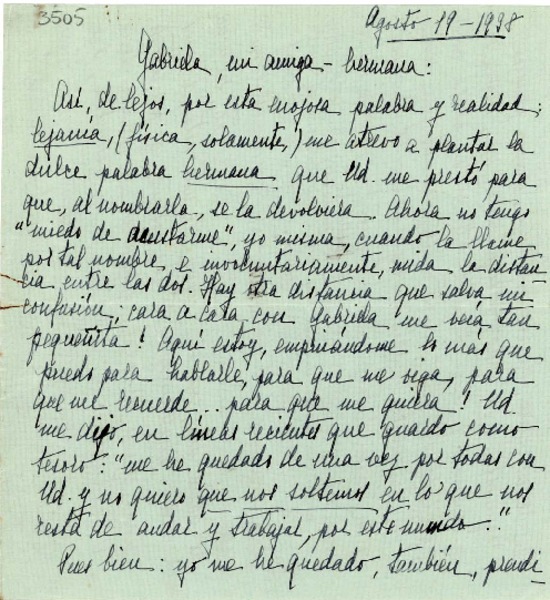 3505
Agosto 19-1938
Gabriela, mi amiga-hermana:
Así, de lejos, por esta enojosa palabra y realidad:
lejanía, (física, solamente,) me atrevo a plantar la
dulce palabra hermana que Ud. me prestó para
que, al nombrarla, se la devolviera. Ahora no tengo
"miedo de asustarme", yo misma, cuando la llame
por tal nombre, e involuntariamente, mida la distan-
cia entre las dos. Hay otra distancia que salva mi
confusión; cara a cara con Gabriela me vería tan
pequeñita! Aquí estoy, empinándome lo más que
puedo para hablarle, para que me oiga, para
que me recuerde... para que me quiera! Ud.
me dijo, en líneas recientes que guardo como
tesoro: "me he quedado de una vez por todas con
Ud. y no quiero que nos soltemos en lo que nos
resta de andar y trabajar, por este mundo."
Pues bien: yo me he quedado, también, prendi-